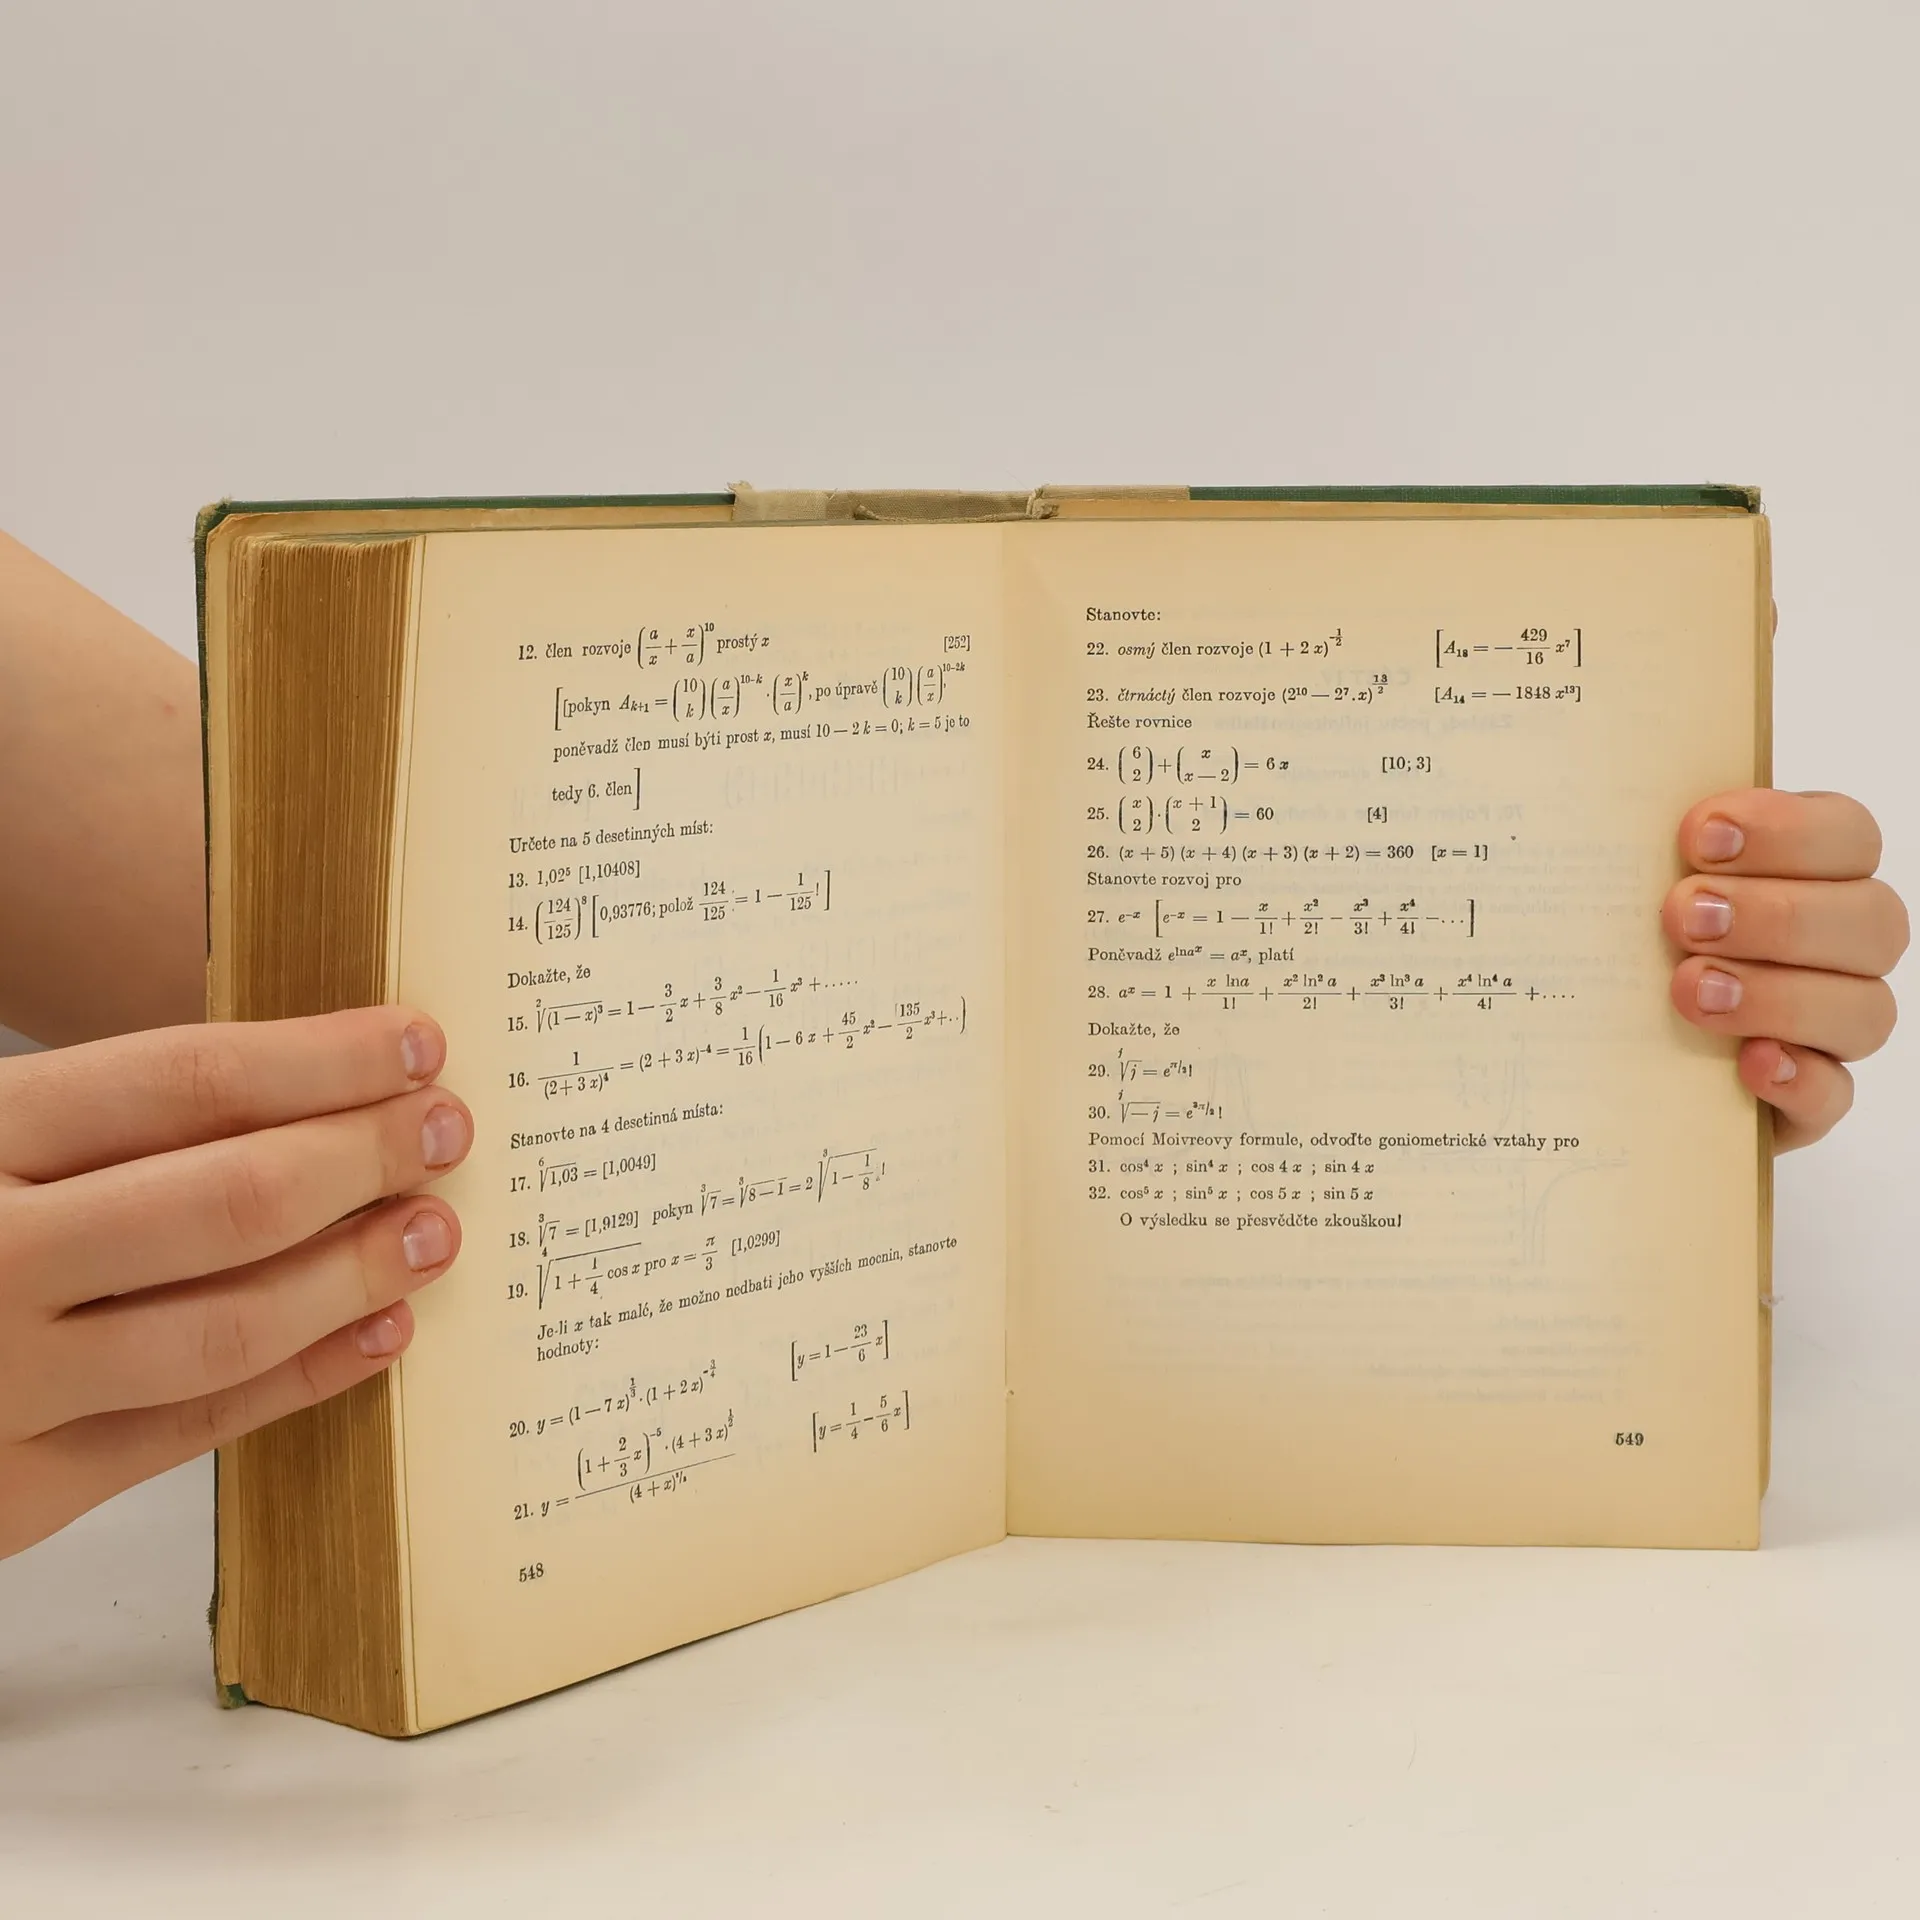 12. člen rozvoje (a/x + x/a)^10 prostý x [252]
[[pokyn A_{k+1} = (10 k) (a/x)^{10-k} · (x/a)^k, po úpravě (10 k) (a/x)^{10-2k},
poněvadž člen musí býti prost x, musí 10 — 2 k = 0; k = 5 je to
tedy 6. člen]
Určete na 5 desetinných míst:
13. 1,02⁵ [1,10408]
14. (124/125)^8 [0,93776; polož 124/125 = 1 — 1/125!]
Dokažte, že
15. ²√(1 — x)³ = 1 — 3/2 x + 3/8 x² — 1/16 x³ + .....
16. 1/(2 + 3 x)⁴ = (2 + 3 x)⁻⁴ = 1/16 (1 — 6 x + 45/2 x² — 135/2 x³ + ..)
Stanovte na 4 desetinná místa:
17. ⁶√1,03 = [1,0049]
18. ³√7 = [1,9129] pokyn ³√7 = ³√8 — 1 = 2 ³√1 — 1/8!
19. ⁴√1 + 1/4 cos x pro x = π/3 [1,0299]
Je-li x tak malé, že možno nedbati jeho vyšších mocnin, stanovte
hodnoty:
20. y = (1 — 7 x)^{1/3} · (1 + 2 x)^{-3/4} [y = 1 — 23/6 x]
21. y = (1 + 2/3 x)^{-5} · (4 + 3 x)^{1/2} / (4 + x)^{3/2} [y = 1/4 — 5/6 x]
548
Stanovte:
22. osmý člen rozvoje (1 + 2 x)^{-1/2} [A₁₈ = — 429/16 x⁷]
23. čtrnáctý člen rozvoje (2¹⁰ — 2⁷.x)^{13/2} [A₁₄ = — 1848 x¹³]
Řešte rovnice
24. (6 2) + (x x — 2) = 6 x [10; 3]
25. (x 2) · (x + 1 2) = 60 [4]
26. (x + 5) (x + 4) (x + 3) (x + 2) = 360 [x = 1]
Stanovte rozvoj pro
27. e^{-x} [e^{-x} = 1 — x/1! + x²/2! — x³/3! + x⁴/4! — ...]
Poněvadž e^{lna^x} = a^x, platí
28. a^x = 1 + x lna/1! + x² ln² a/2! + x³ ln³ a/3! + x⁴ ln⁴ a/4! + ....
Dokažte, že
29. ^j√j = e^{π/2}!
30. ^j√— j = e^{3π/2}!
Pomocí Moivreovy formule, odvoďte goniometrické vztahy pro
31. cos⁴ x ; sin⁴ x ; cos 4 x ; sin 4 x
32. cos⁵ x ; sin⁵ x ; cos 5 x ; sin 5 x
O výsledku se přesvědčte zkouškou!
549